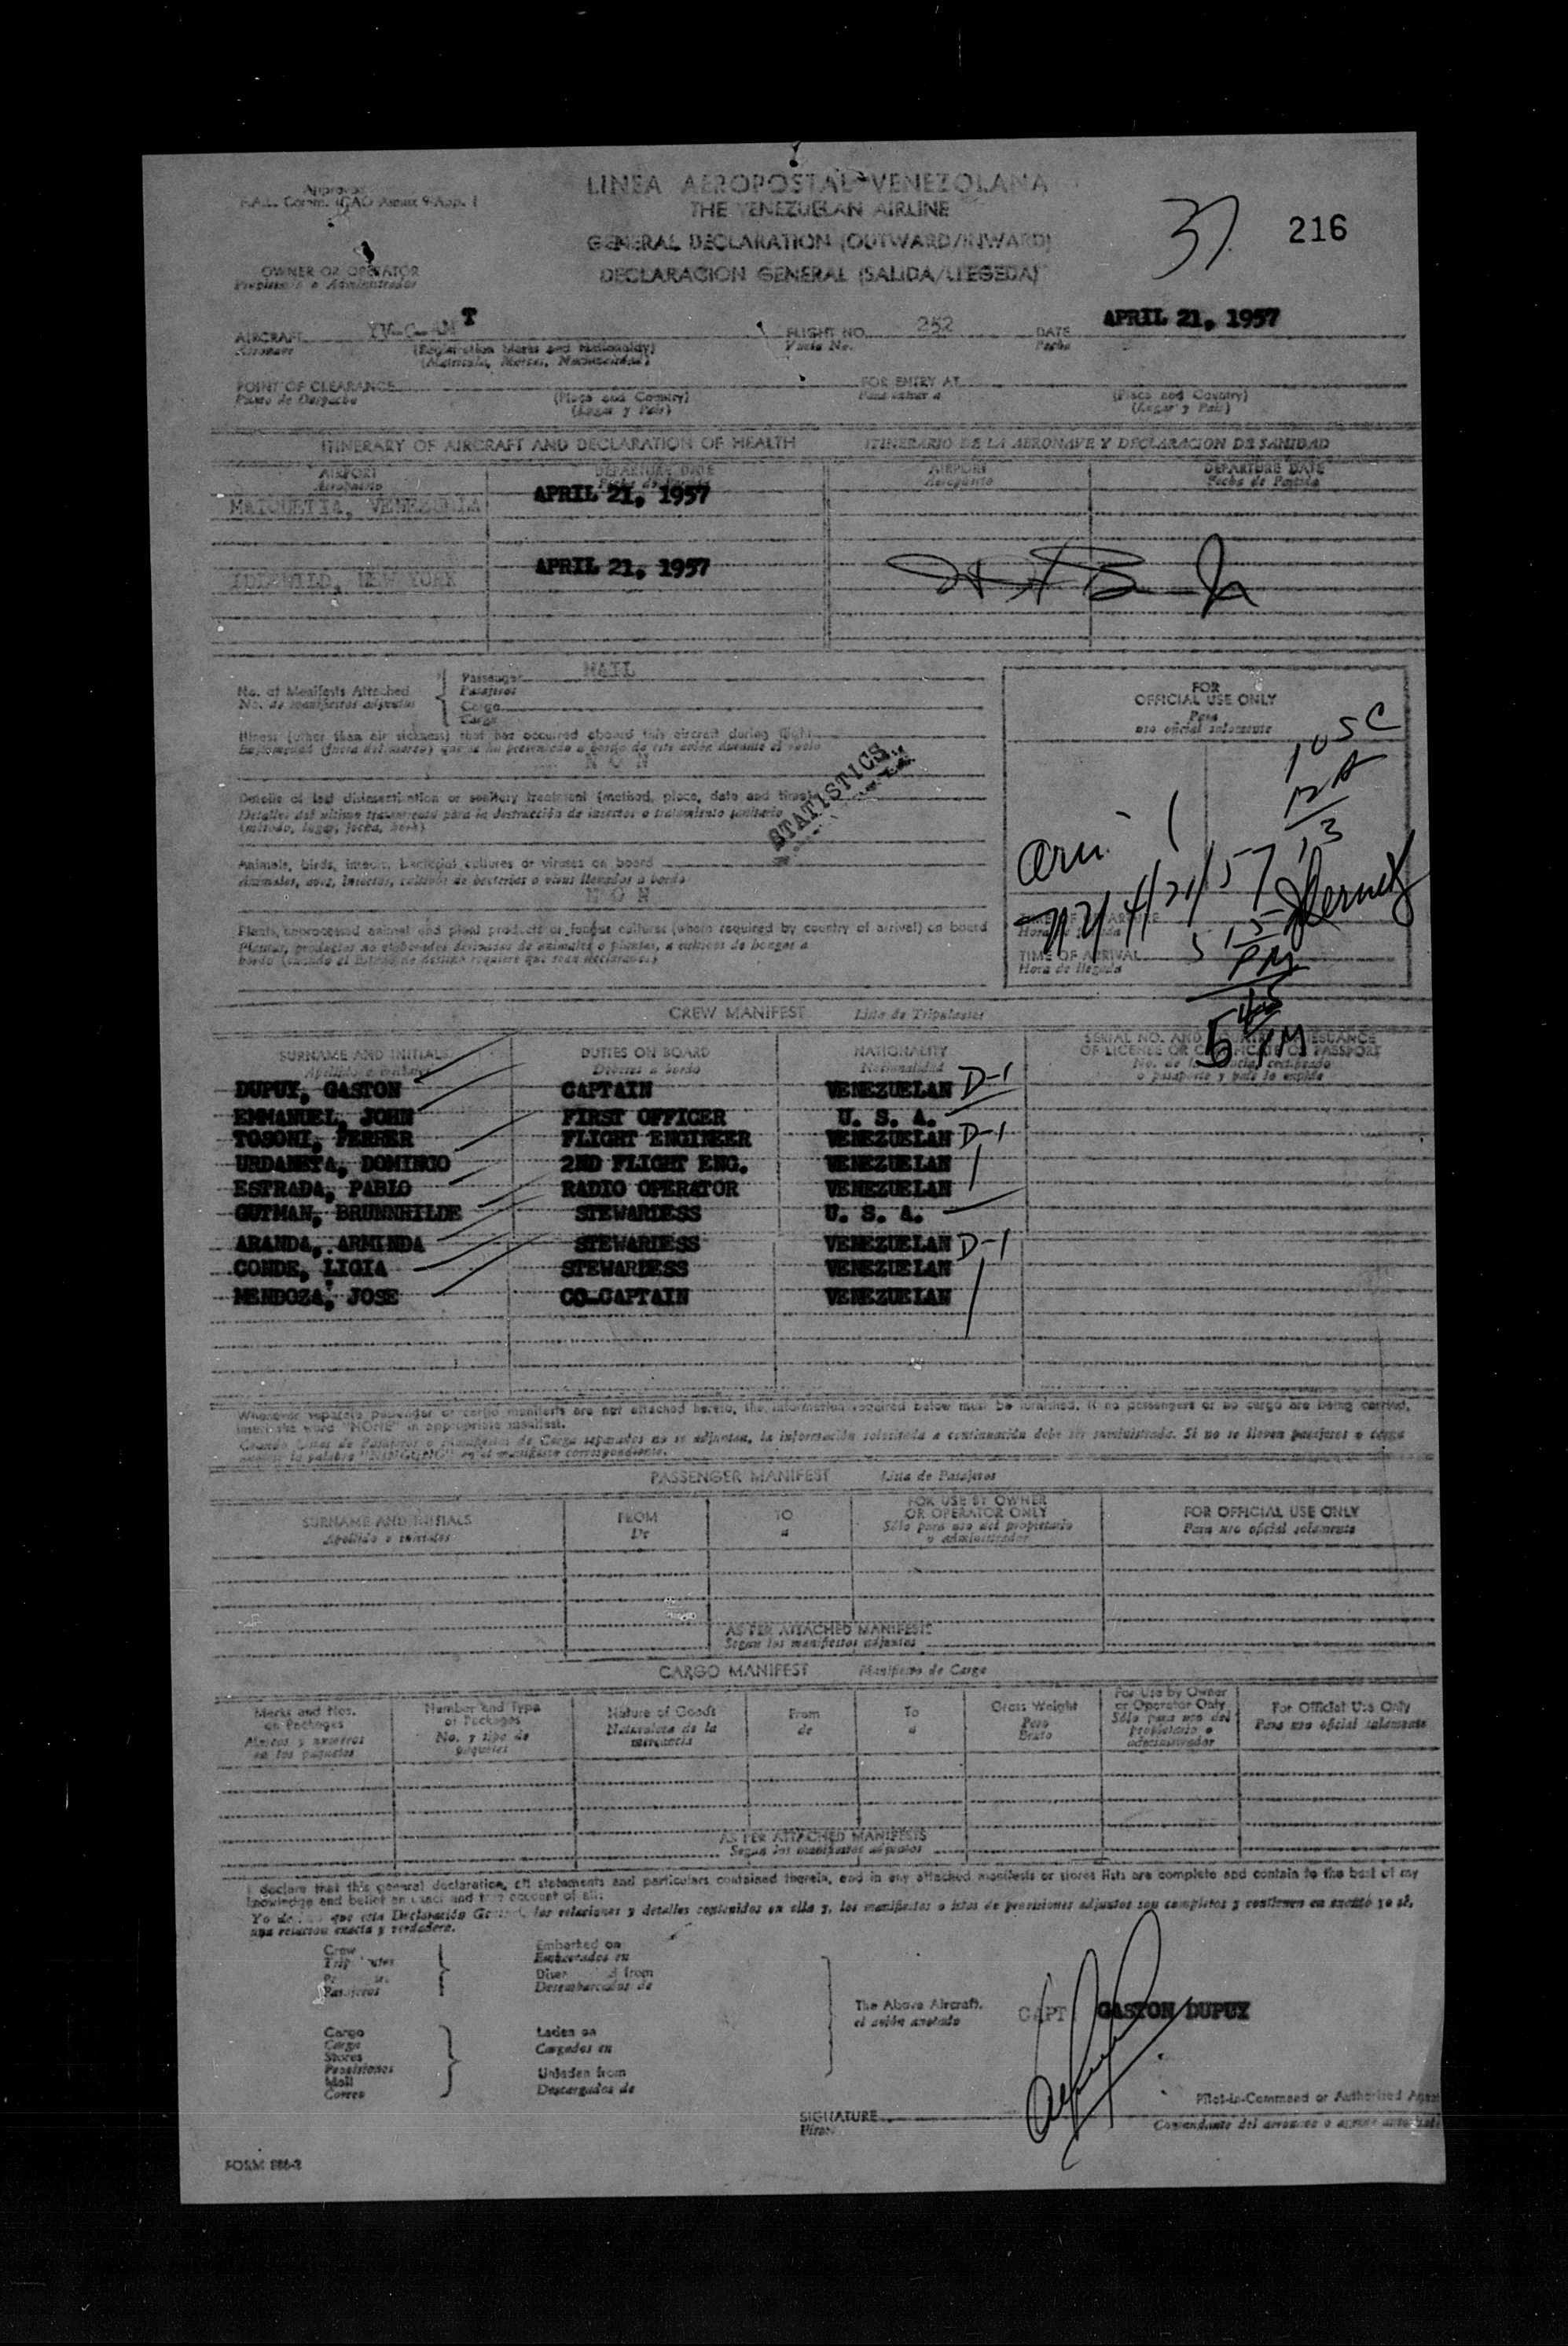 Approved
F.A.L. Comm. ICAO Annex 9 App. 1
LINEA AEROPOSTAL VENEZOLANA
THE VENEZUELAN AIRLINE
GENERAL DECLARATION (OUTWARD/INWARD)
DECLARACION GENERAL (SALIDA/LLEGEDA)
37 216
OWNER OR OPERATOR
Propietario o Administrador
AIRCRAFT T FLIGHT NO. 252 DATE APRIL 21, 1957
Aeronave (Registration Marks and Nationality) Vuelo No. Fecha
(Matricula, Marcas, Nacionalidad)
POINT OF CLEARANCE FOR ENTRY AT
Punto de Despacho (Place and Country) Para entrar a (Place and Country)
(Lugar y Pais) (Lugar y Pais)
ITINERARY OF AIRCRAFT AND DECLARATION OF HEALTH ITINERARIO DE LA AERONAVE Y DECLARACION DE SANIDAD
AIRPORT DEPARTURE DATE AIRPORT DEPARTURE DATE
Aeropuerto Fecha de Partida Aeropuerto Fecha de Partida
MAIQUETIA, VENEZUELA APRIL 21, 1957
IDLEWILD, NEW YORK APRIL 21, 1957
No. of Manifests Attached
No. de manifiestos adjuntos
Passenger MAIL
Pasajeros
Cargo
Carga
Illness (other than air sickness) that has occurred aboard this aircraft during flight
Enfermedad (fuera del mareo) que se ha presentado a bordo de este avión durante el vuelo
N O N
Details of last disinsectization or sanitary treatment (method, place, date and time)
Detalles del ultimo tratamiento para la destrucción de insectos o tratamiento sanitario
(método, lugar, fecha, hora)
STATISTICS
Animals, birds, insects, bacterial cultures or viruses on board
Animales, aves, insectos, cultivos de bacterias o virus llevados a bordo
N O N
Plants, unprocessed animal and plant products or fungus cultures (when required by country of arrival) on board
Plantas, productos no elaborados derivados de animales o plantas, o cultivos de hongos a
bordo (cuando el Estado de destino requiere que sean declarados)
FOR
OFFICIAL USE ONLY
Para
uso oficial solamente
10 SC
13
NY 4/21/57
TIME OF DEPARTURE
TIME OF ARRIVAL 5 15 PM
Hora de llegada
5 45 PM
CREW MANIFEST Lista de Tripulantes
SURNAME AND INITIALS DUTIES ON BOARD NATIONALITY SERIAL NO. AND COUNTRY OF ISSUANCE
OF LICENSE OR CERTIFICATE OR PASSPORT
Apellido e iniciales Deberes a bordo Nacionalidad No. de la licencia, certificado
o pasaporte y pais lo expide
DUPUY, GASTON CAPTAIN VENEZUELAN D-1
EMMANUEL, JOHN FIRST OFFICER U. S. A.
TOSONI, FERRER FLIGHT ENGINEER VENEZUELAN D-1
URDANETA, DOMINGO 2ND FLIGHT ENG. VENEZUELAN
ESTRADA, PABLO RADIO OPERATOR VENEZUELAN
GUTMAN, BRUNNHILDE STEWARDESS U. S. A.
ARANDA, ARMINDA STEWARDESS VENEZUELAN D-1
CONDE, LIGIA STEWARDESS VENEZUELAN
MENDOZA, JOSE CO-CAPTAIN VENEZUELAN
Whenever separate passenger or cargo manifests are not attached hereto, the information required below must be furnished. If no passengers or no cargo are being carried,
insert the word "NONE" in appropriate manifest.
Cuando Listas de Pasajeros o Manifiestos de Carga separados no se adjuntan, la información solicitada a continuación debe ser suministrada. Si no se llevan pasajeros o carga
la palabra "NINGUNO" en el manifiesto correspondiente.
PASSENGER MANIFEST Lista de Pasajeros
SURNAME AND INITIALS FROM TO FOR USE BY OWNER
OR OPERATOR ONLY FOR OFFICIAL USE ONLY
Apellido e iniciales De a Sólo para uso del propietario
o administrador Para uso oficial solamente
AS PER ATTACHED MANIFESTS
Segun los manifiestos adjuntos
CARGO MANIFEST Manifiesto de Carga
Marks and Nos.
on Packages
Marcas y numeros
en los paquetes
Number and Type
of Packages
No. y tipo de
paquetes
Nature of Goods
Naturaleza de la
mercancia
From
de
To
a
Gross Weight
Peso
Bruto
For Use by Owner
or Operator Only
Sólo para uso del
propietario o
administrador
For Official Use Only
Para uso oficial solamente
AS PER ATTACHED MANIFESTS
Segun los manifiestos adjuntos
I declare that this general declaration, all statements and particulars contained therein, and in any attached manifests or stores lists are complete and contain to the best of my
knowledge and belief an exact and true account of all:
Yo declaro que esta Declaración General, las relaciones y detalles contenidos en ella y, los manifiestos o listas de provisiones adjuntos son completos y contienen en cuanto yo sé,
una relacion exacta y verdadera.
Crew
Pasajeros
Embarked on
Embarcados en
from
Desembarcados de
Cargo
Carga
Stores
Provisiones
Mail
Correo
Laden on
Cargados en
Unladen from
Descargados de
The Above Aircraft.
el avión anotado
CAPT. GASTON DUPUY
Pilot-in-Command or Authorized Agent
SIGNATURE
Firma
Comandante del aeronave o agente autorizado
FORM 886-2